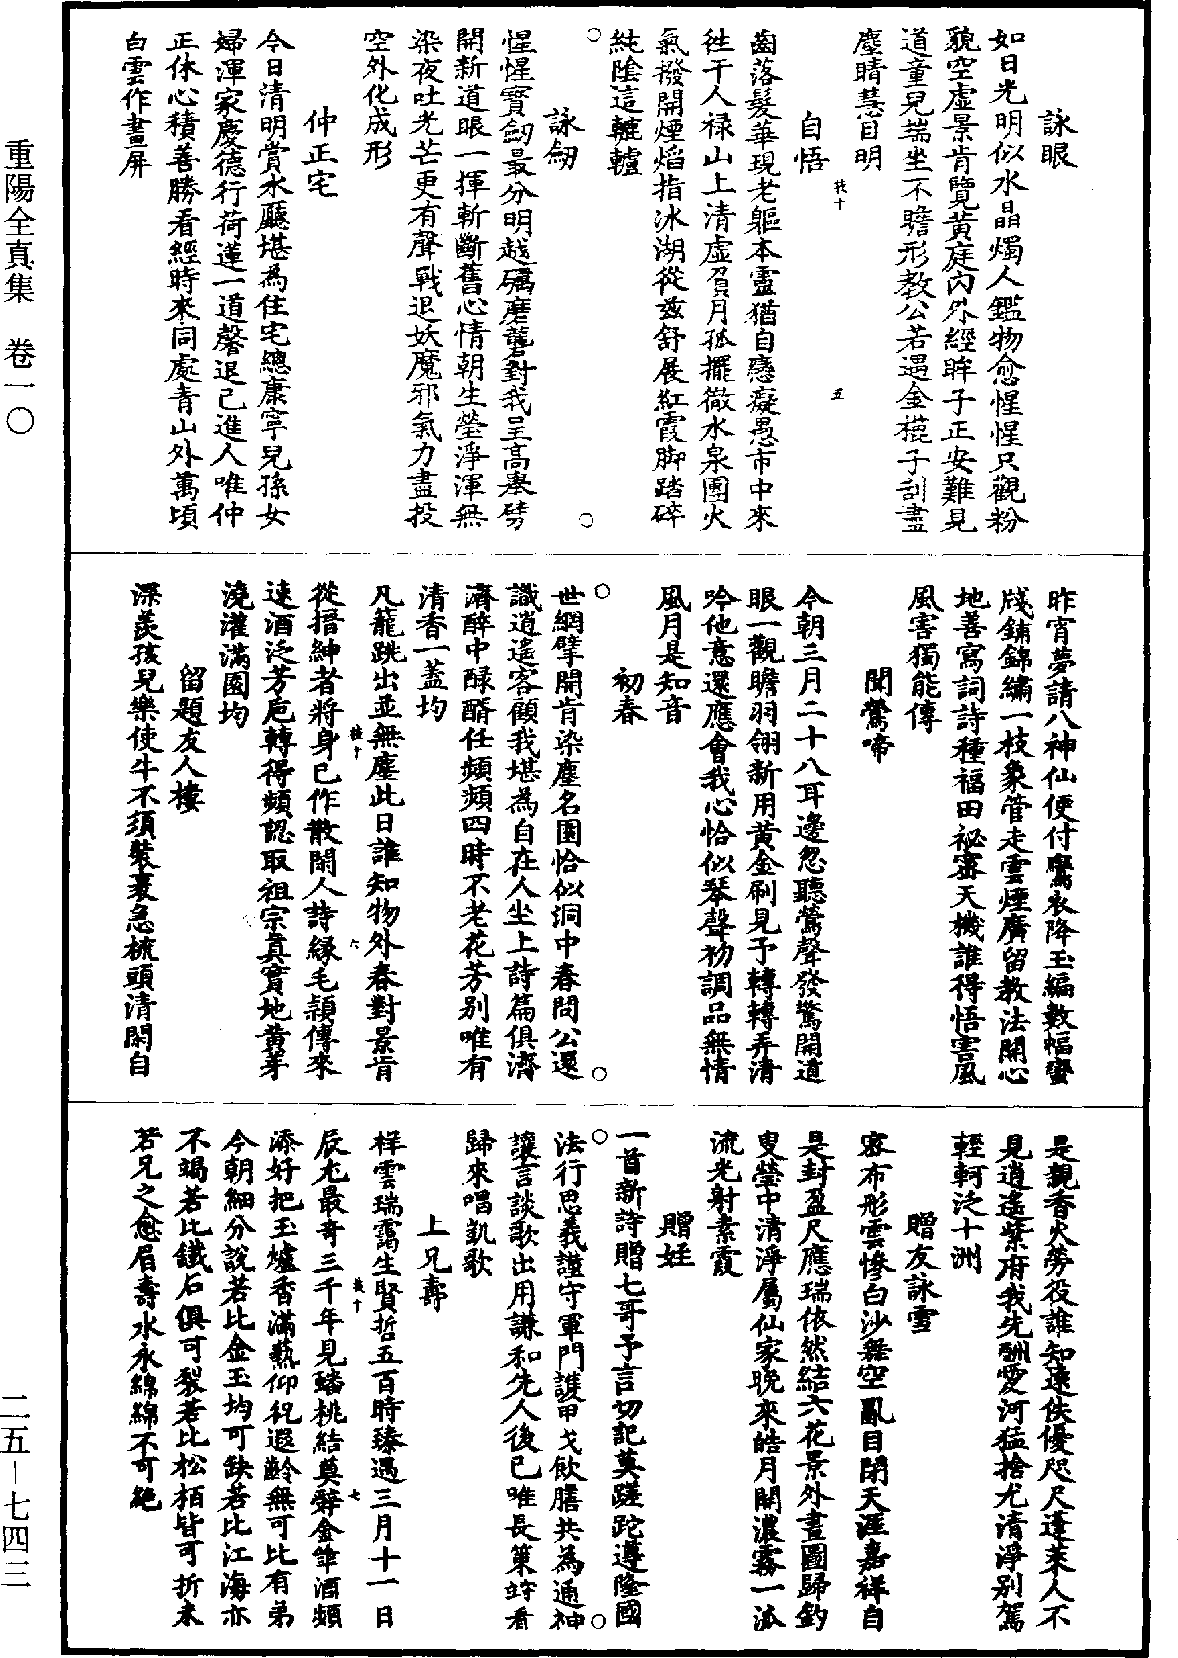 詠眼
如日光明似水晶燭人鑑物愈惺惺只觀粉
貌空虛景肯覽黄庭內外經眸子正安難見
道童兒端坐不瞻形教公若遇金篦子刮盡
塵睛慧目明
自悟
齒落髮華現老軀本靈猶自戀癡愚市中來
往千人禄山上清虛負月孤擺撤水泉團火
氣撥開煙焰指冰湖從兹舒展紅霞脚踏碎
純陰這轆轤
詠劒
惺惺寶劒最分明越礪磨礱對我呈高舉劈
開新道眼一揮斬斷舊心情朝生瑩淨渾無
染夜吐光芒更有聲戰退妖魔邪氣力盡投
空外化成形
仲正宅
今日清明賞水廳堪為住宅總康寧兒孫女
婦渾家慶德行荷蓮一道馨退己進人唯仲
正休心積善勝看經時來同處青山外萬頃
白雲作畫屏
昨宵夢請八神仙便付鸞衣降玉編數幅蠻
牋鋪錦繡一枝象管走雲煙廣留教法開心
地善寫詞詩種福田祕密天機誰得悟害風
風害獨能傳
聞鶯啼
今朝三月二十八耳邊忽聽鶯聲發驚開道
眼一觀瞻羽翎新用黄金刷見予轉轉弄清
吟他意還應會我心恰似琴聲初調品無情
風月是知音
初春
世網擘開肯染塵名園恰似洞中春問公還
識逍遙客顧我堪為自在人坐上詩篇俱濟
濟醉中醁醑任頻頻四時不老花芳别唯有
清香一蓋均
凡籠跳出並無塵此日誰知物外春對景肯
從搢紳者將身已作散閑人詩緣毛頴傳來
速酒泛芳卮轉得頻認取祖宗真實地黄芽
澆灌滿園均
留題友人樓
深羨孩兒樂使牛不須裝裹急梳頭清閑自
是觀香火勞役誰知速佚優咫尺蓬萊人不
見逍遙紫府我先酬愛河猛捨尤清淨别駕
輕軻泛十洲
贈友詠雪
密布彤雲慘白沙舞空亂目閉天涯嘉祥自
是封盈尺應瑞依然結六花景外畫圖歸釣
叟瑩中清淨屬仙家晚來皓月開濃霧一派
流光射素霞
贈姪
一首新詩贈七哥予言切記莫蹉跎遵隆國
法行思義謹守軍門護甲戈飲膳共為通神
讓言談歌出用謙和先人後己唯長策竚看
歸來唱凱歌
上兄壽
祥雲瑞靄生賢哲五百時臻遇三月十一日
辰尤最奇三千年見蟠桃結奠辭金觶酒頻
添好把玉爐香滿爇仰祝遐齡無可比有弟
今朝細分說若比金玉均可缺若比江海亦
不竭若比鐵石俱可裂若比松栢皆可折未
若兄之愈眉壽水永綿綿不可絕
重陽全真集 卷一〇
二五－七四三